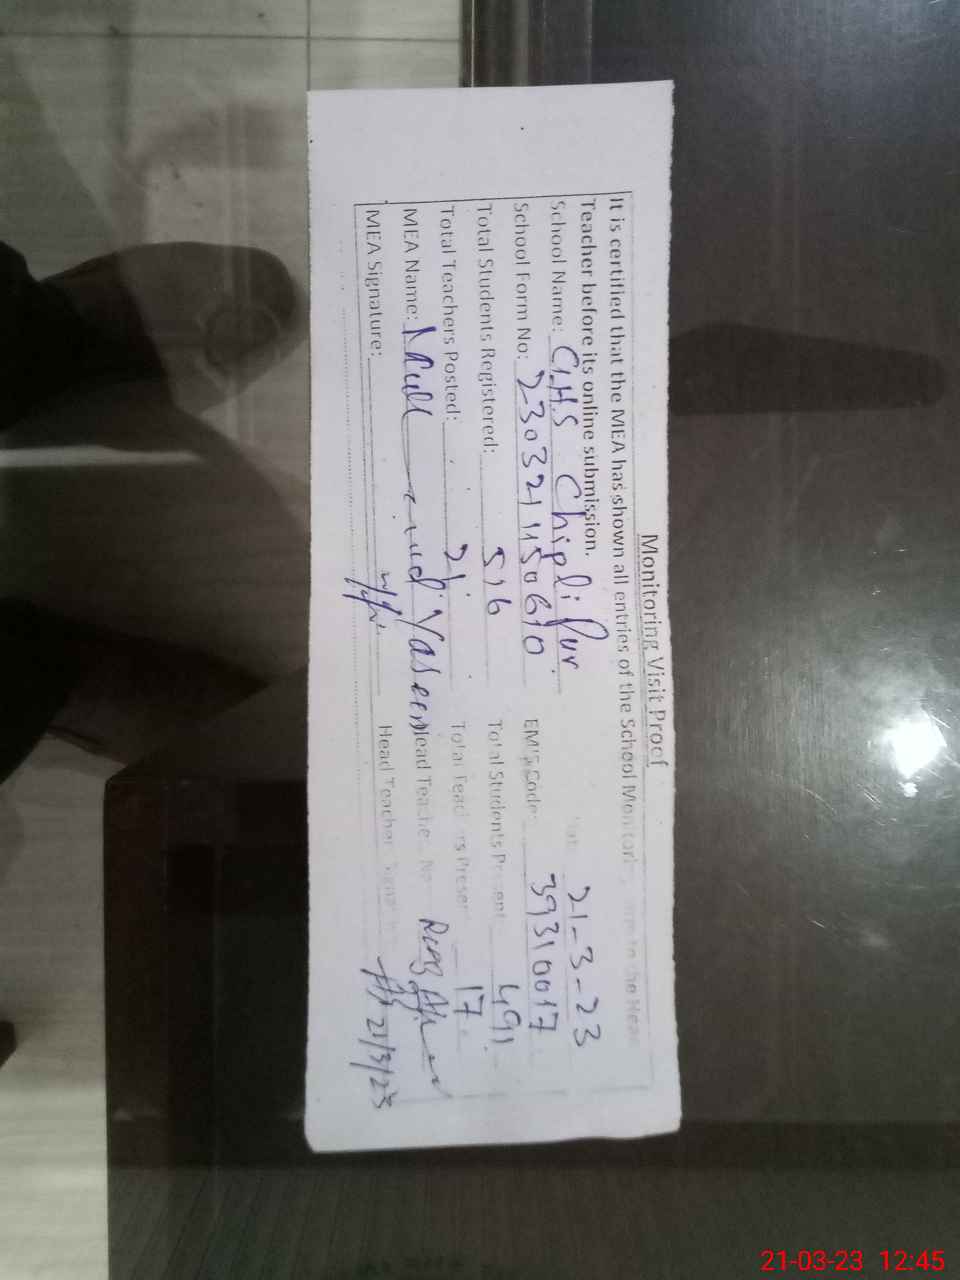 Monitoring Visit Proof
It is certified that the MEA has shown all entries of the School Monitoring to the Head
Teacher before its online submission.
School Name: G.H.S Chipli Pur. 21-3-23
School Form No: 230321150610 EMIS Code: 39310017
Total Students Registered: 516 Total Students Present 491
Total Teachers Posted: 21 Total Teachers Present 17
MEA Name: Yaseen Head Teacher
MEA Signature: Head Teacher Signature 21/3/23
21-03-23 12:45